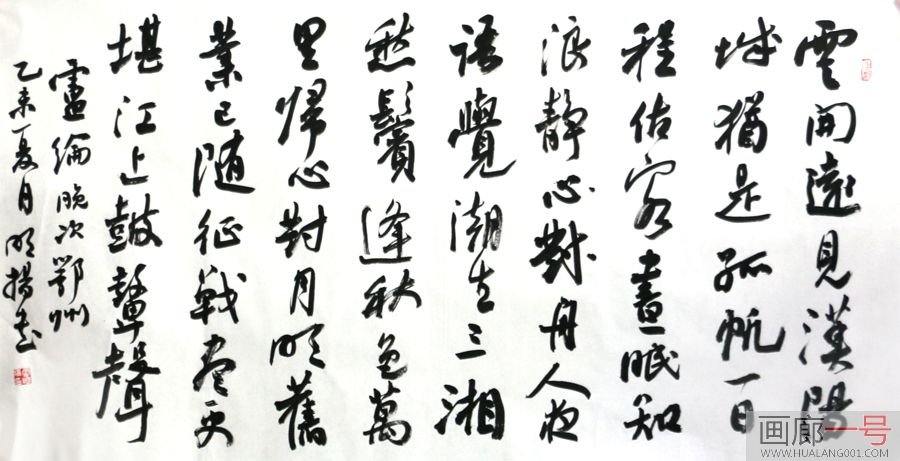 雲開遠見漢陽
城猶是孤帆一日
程估客晝眠知
浪靜心對舟人夜
語覺潮生三湘
愁鬢逢秋色萬
里歸心對月明舊
業已随征戰盡更
堪江上鼓鼙聲
盧綸晚次鄂州
乙未夏月明揚書
画廊一号
WWW.HUALANG001.COM